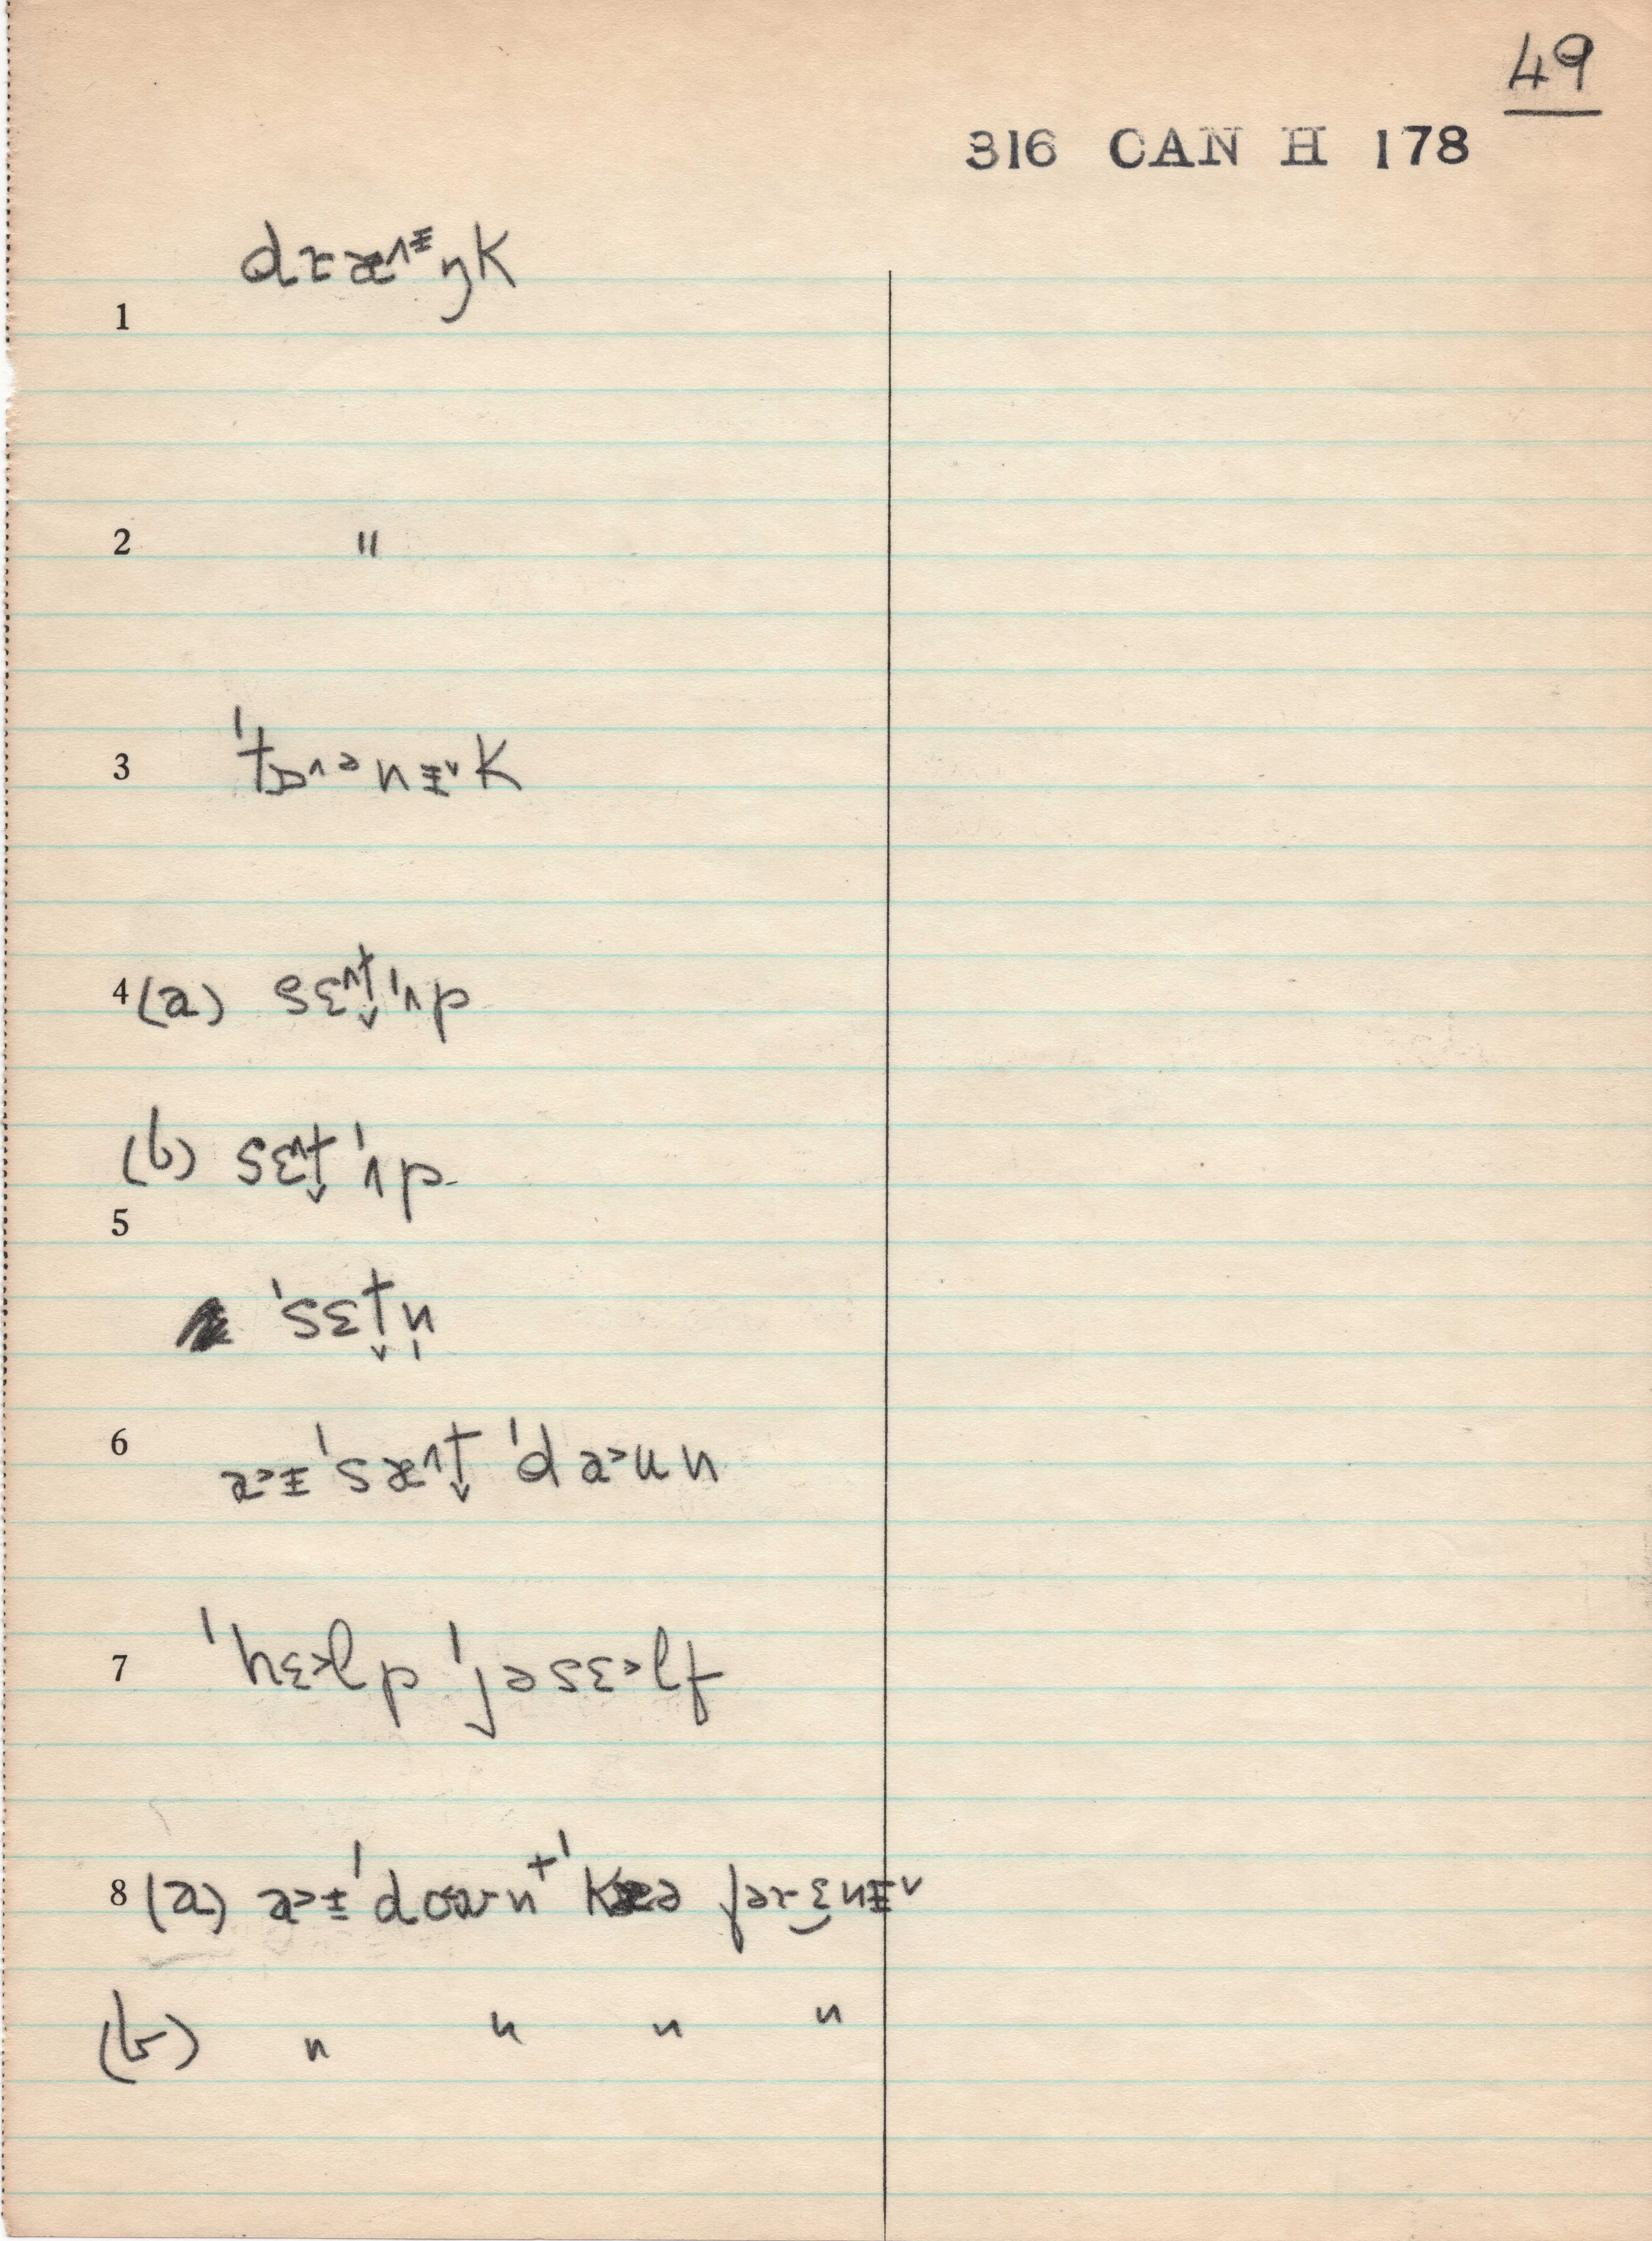 49
316 CAN H 178
dɾæ˄ᵻŋk
1
2 "
3 ˈtɒ˄ənᵻ˅k
4 (a) sɛ˄t̬ ˈʌp
(b) sɛ˄t̬ ˈʌp
5
ˈsɛt̬n̩
6 a˃ᵻ ˈsæ˄t̬ ˈda˃un
7 ˈhɛ˃lp ˈjəsɛ˃lf
8 (a) a˃ᵻ ˈdount ˈkɛə fərɛnᵻ˅
(b) " " " "